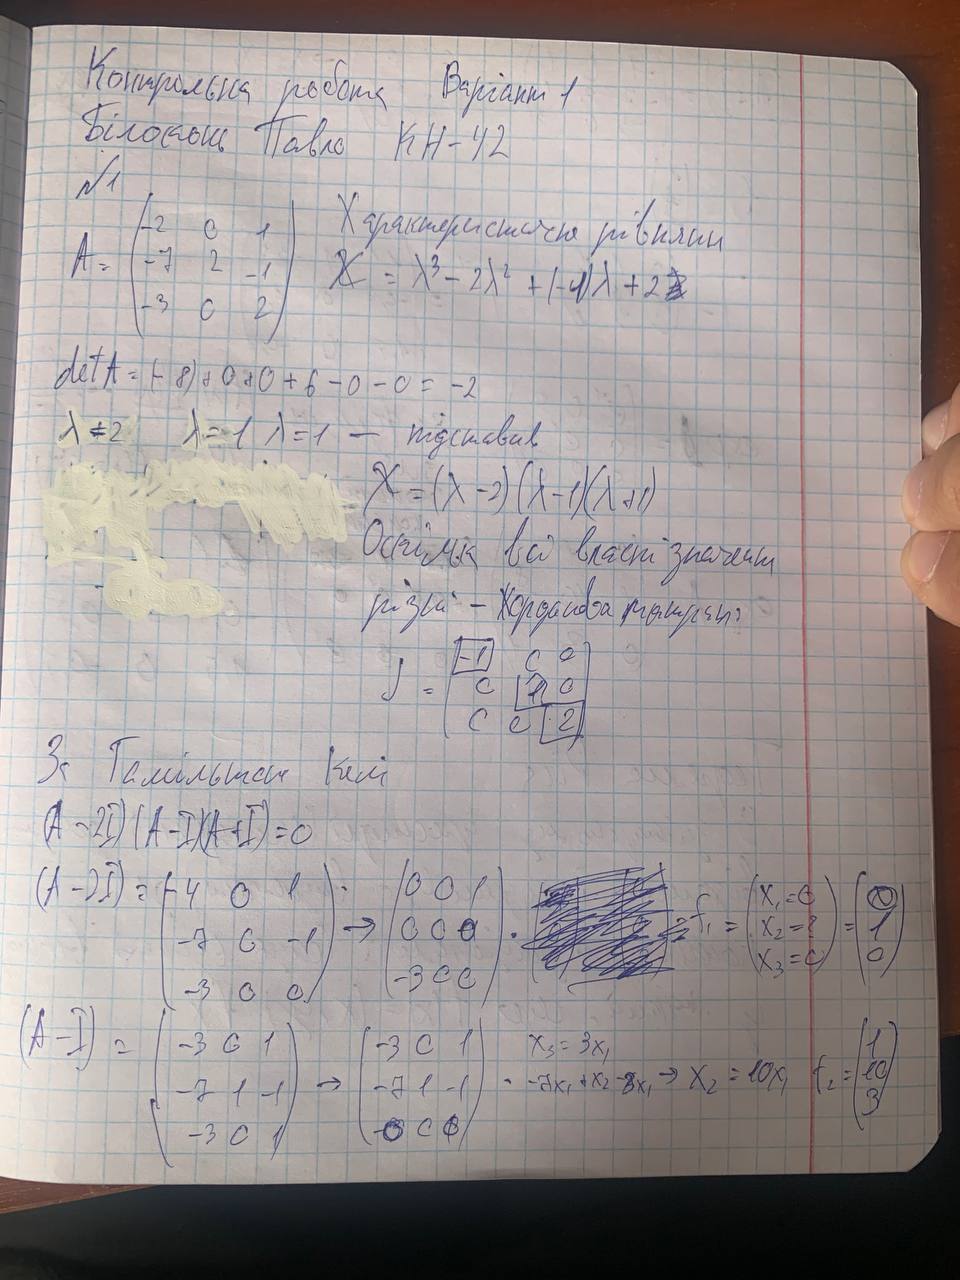 Контрольна робота Варіант 1
Павло КН-42
№1
A = (-2 0 1
-7 2 -1
-3 0 2)
Характеристичне рівняння
X = λ³ - 2λ² + (-1)λ + 2
det A = (-8) + 0 + 0 + 6 - 0 - 0 = -2
λ = 2 λ = -1 λ = 1 — підставив
X = (λ - 2)(λ - 1)(λ + 1)
Оскільки всі власні значення
різні - Жорданова
J = (-1 0 0
0 1 0
0 0 2)
За Гамільтон Келі
(A - 2I)(A - I)(A + I) = 0
(A - 2I) = (-4 0 1
-7 0 -1
-3 0 0) → (0 0 1
0 0 0
-3 0 0) · f₁ = (x₁ = 0
x₂ = ?
x₃ = 0) = (0
1
0)
(A - I) = (-3 0 1
-7 1 -1
-3 0 1) → (-3 0 1
-7 1 -1
0 0 0) · x₃ = 3x₁
-7x₁ + x₂ - 3x₁ → x₂ = 10x₁ f₂ = (1
10
3)